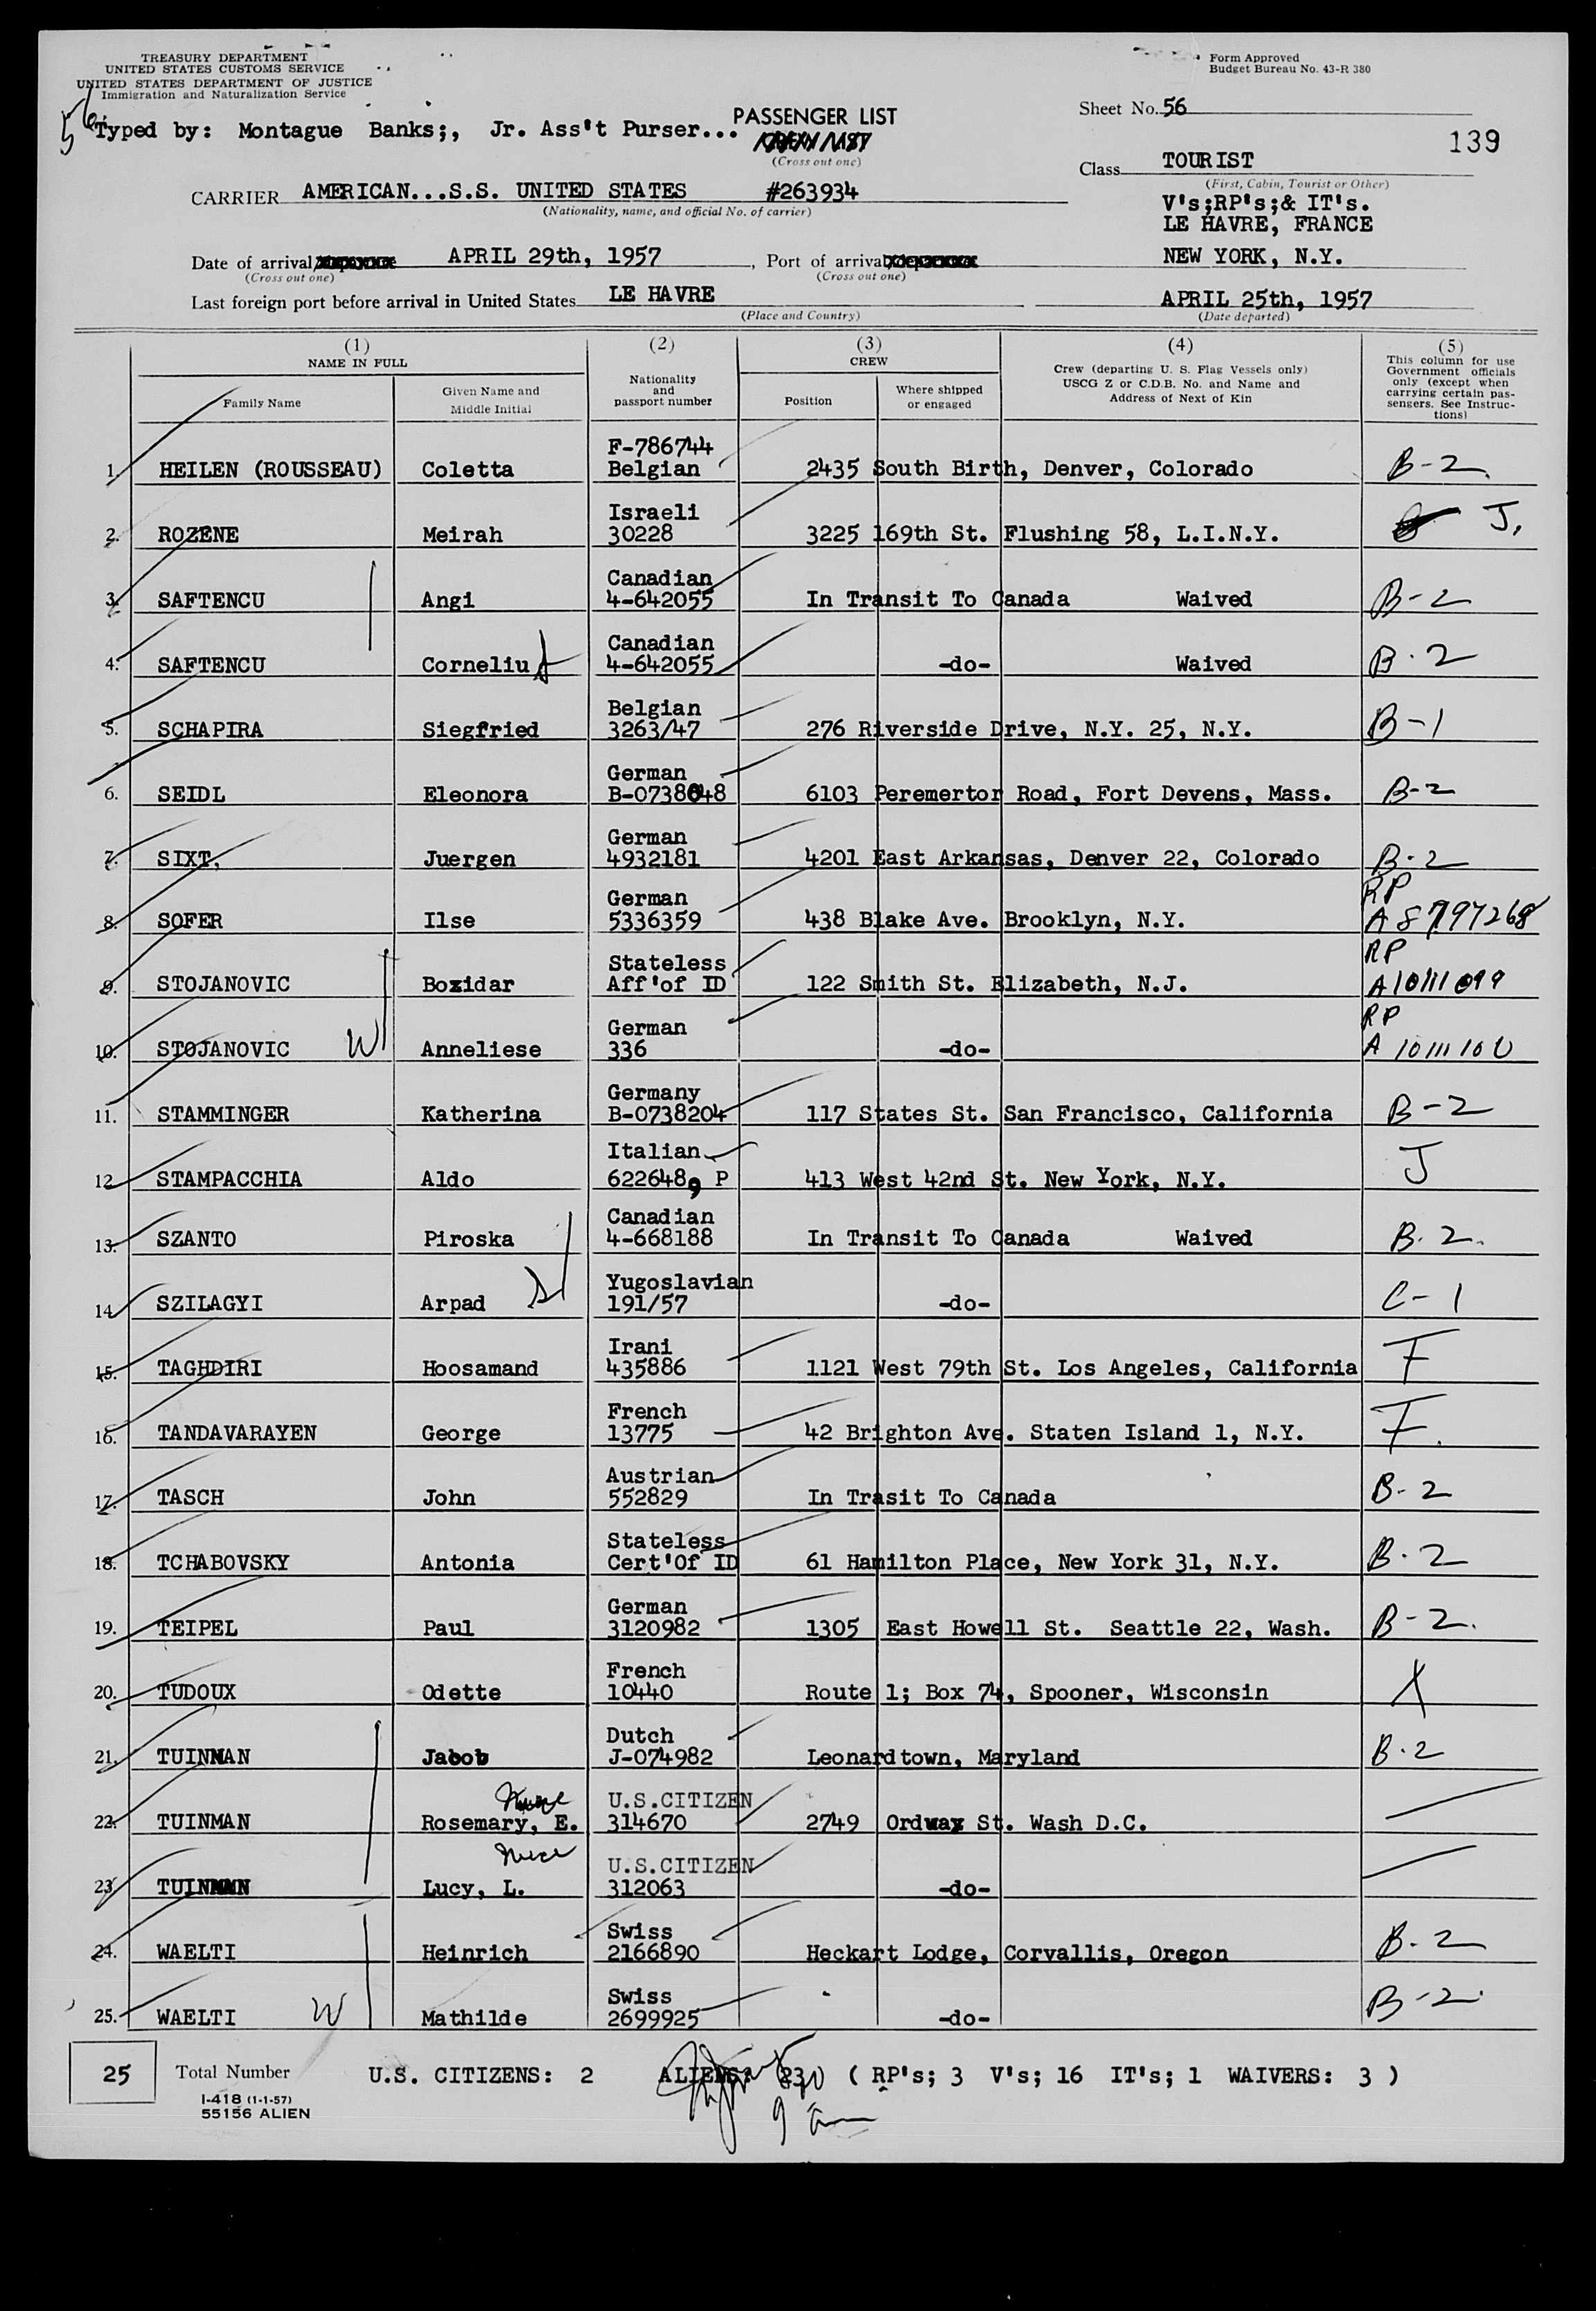 TREASURY DEPARTMENT
UNITED STATES CUSTOMS SERVICE
UNITED STATES DEPARTMENT OF JUSTICE
Immigration and Naturalization Service
Form Approved
Budget Bureau No. 43-R 380
56
Typed by: Montague Banks;, Jr. Ass't Purser...
PASSENGER LIST
(Cross out one)
Sheet No. 56
139
Class TOURIST
(First, Cabin, Tourist or Other)
CARRIER AMERICAN...S.S. UNITED STATES #263934
(Nationality, name, and official No. of carrier)
V's;RP's;& IT's.
LE HAVRE, FRANCE
Date of arrival APRIL 29th, 1957, Port of arrival NEW YORK, N.Y.
(Cross out one) (Cross out one)
Last foreign port before arrival in United States LE HAVRE APRIL 25th, 1957
(Place and Country) (Date departed)
(1) NAME IN FULL
Family Name
Given Name and Middle Initial
(2) Nationality and passport number
(3) CREW
Position
Where shipped or engaged
(4) Crew (departing U. S. Flag Vessels only) USCG Z or C.D.B. No. and Name and Address of Next of Kin
(5) This column for use Government officials only (except when carrying certain passengers. See Instructions)
1. HEILEN (ROUSSEAU) Coletta F-786744 Belgian 2435 South Birth, Denver, Colorado B-2
2. ROZENE Meirah Israeli 30228 3225 169th St. Flushing 58, L.I.N.Y. J.
3. SAFTENCU Angi Canadian 4-642055 In Transit To Canada Waived B-2
4. SAFTENCU Corneliu Canadian 4-642055 -do- Waived B-2
5. SCHAPIRA Siegfried Belgian 3263/47 276 Riverside Drive, N.Y. 25, N.Y. B-1
6. SEIDL Eleonora German B-0738048 6103 Peremertor Road, Fort Devens, Mass. B-2
7. SIXT, Juergen German 4932181 4201 East Arkansas, Denver 22, Colorado B-2
8. SOFER Ilse German 5336359 438 Blake Ave. Brooklyn, N.Y. RP A 8797268
9. STOJANOVIC Bozidar Stateless Aff'of ID 122 Smith St. Elizabeth, N.J. RP A10111099
10. STOJANOVIC W Anneliese German 336 -do- RP A 10111100
11. STAMMINGER Katherina Germany B-0738204 117 States St. San Francisco, California B-2
12. STAMPACCHIA Aldo Italian 622648, P 413 West 42nd St. New York, N.Y. J
13. SZANTO Piroska Canadian 4-668188 In Transit To Canada Waived B-2.
14. SZILAGYI Arpad Yugoslavian 191/57 -do- C-1
15. TAGHDIRI Hoosamand Irani 435886 1121 West 79th St. Los Angeles, California F
16. TANDAVARAYEN George French 13775 42 Brighton Ave. Staten Island 1, N.Y. F.
17. TASCH John Austrian 552829 In Trasit To Canada B-2
18. TCHABOVSKY Antonia Stateless Cert'Of ID 61 Hamilton Place, New York 31, N.Y. B-2
19. TEIPEL Paul German 3120982 1305 East Howell St. Seattle 22, Wash. B-2.
20. TUDOUX Odette French 10440 Route 1; Box 74, Spooner, Wisconsin X
21. TUINMAN Jacob Dutch J-074982 Leonardtown, Maryland B-2
22. TUINMAN Rosemary, E. U.S.CITIZEN 314670 2749 Ordway St. Wash D.C.
23. TUINMAN Lucy, L. U.S.CITIZEN 312063 -do-
24. WAELTI Heinrich Swiss 2166890 Heckart Lodge, Corvallis, Oregon B-2
25. WAELTI W Mathilde Swiss 2699925 -do- B-2
25 Total Number U.S. CITIZENS: 2 ALIENS: ( RP's; 3 V's; 16 IT's; 1 WAIVERS: 3 )
I-418 (1-1-57)
55156 ALIEN